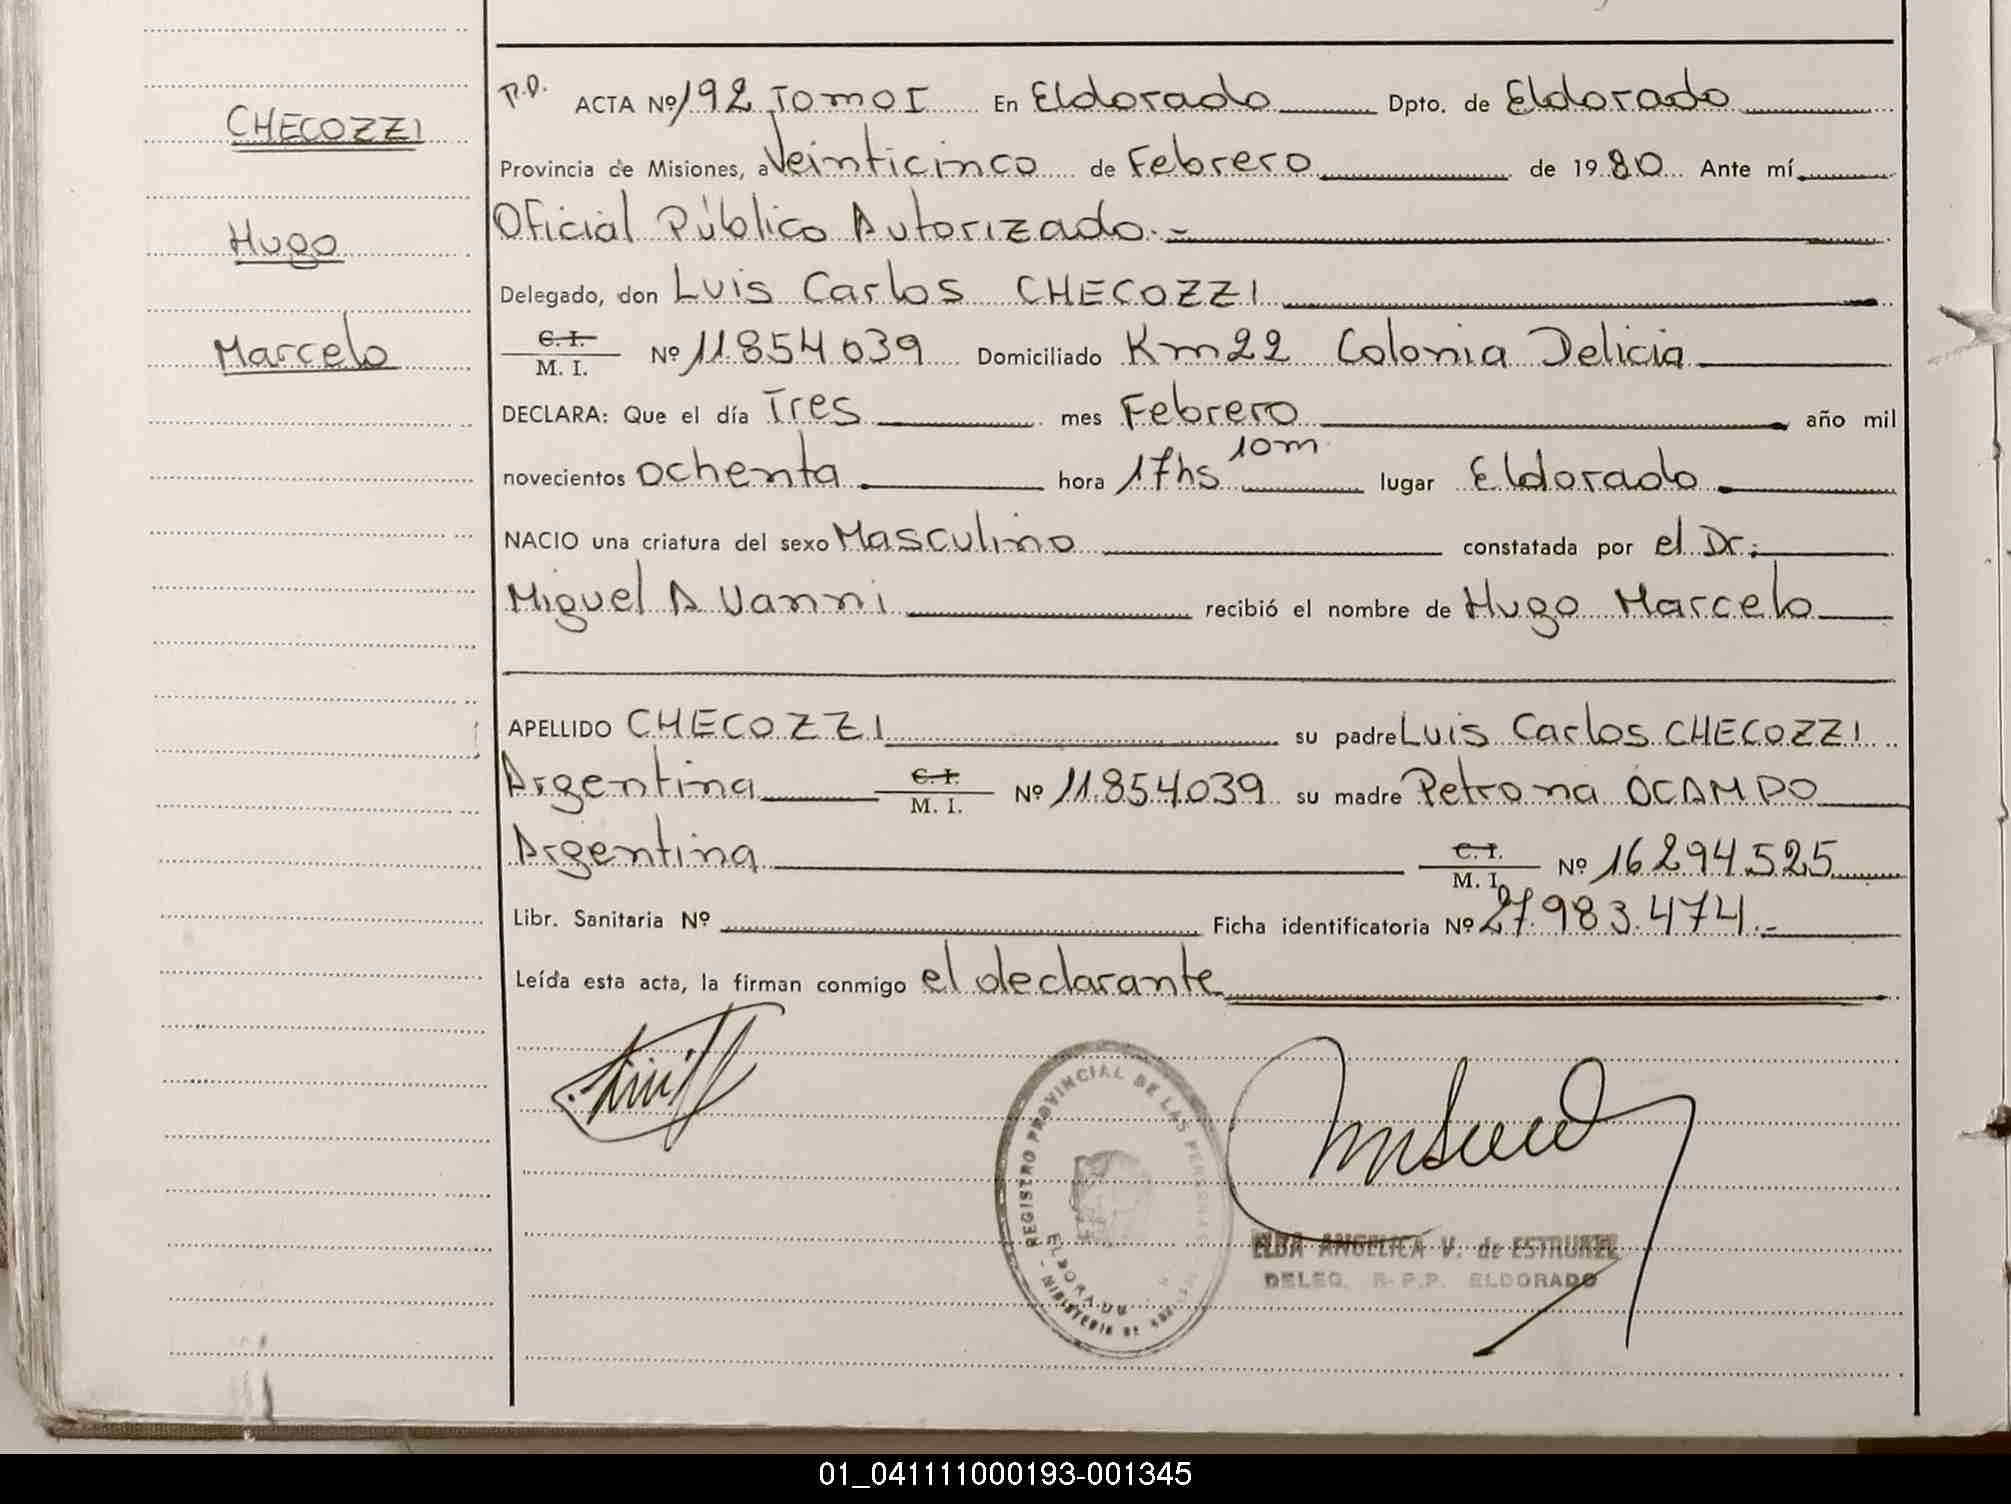 CHECOZZI
Hugo
Marcelo
P.D. ACTA Nº 192 Tomo I En Eldorado Dpto. de Eldorado
Provincia de Misiones, a Veinticinco de Febrero de 1980 Ante mí
Oficial Público Autorizado.-
Delegado, don Luis Carlos CHECOZZI
C. I.
M. I. Nº 11.854.039 Domiciliado Km 22 Colonia Delicia
DECLARA: Que el día Tres mes Febrero año mil
novecientos ochenta hora 17hs 10m lugar Eldorado
NACIO una criatura del sexo Masculino constatada por el Dr.
Miguel A Vanni recibió el nombre de Hugo Marcelo
APELLIDO CHECOZZI su padre Luis Carlos CHECOZZI
Argentina C. I. M. I. Nº 11.854.039 su madre Petrona OCAMPO
Argentina C. I. M. I. Nº 16.294.525
Libr. Sanitaria Nº Ficha identificatoria Nº 27.983.474.-
Leída esta acta, la firman conmigo el declarante
REGISTRO PROVINCIAL DE LAS PERSONAS
ELDORADO
MINISTERIO DE
ELBA ANGELICA V. de
DELEG. R.P.P. ELDORADO
01_041111000193-001345